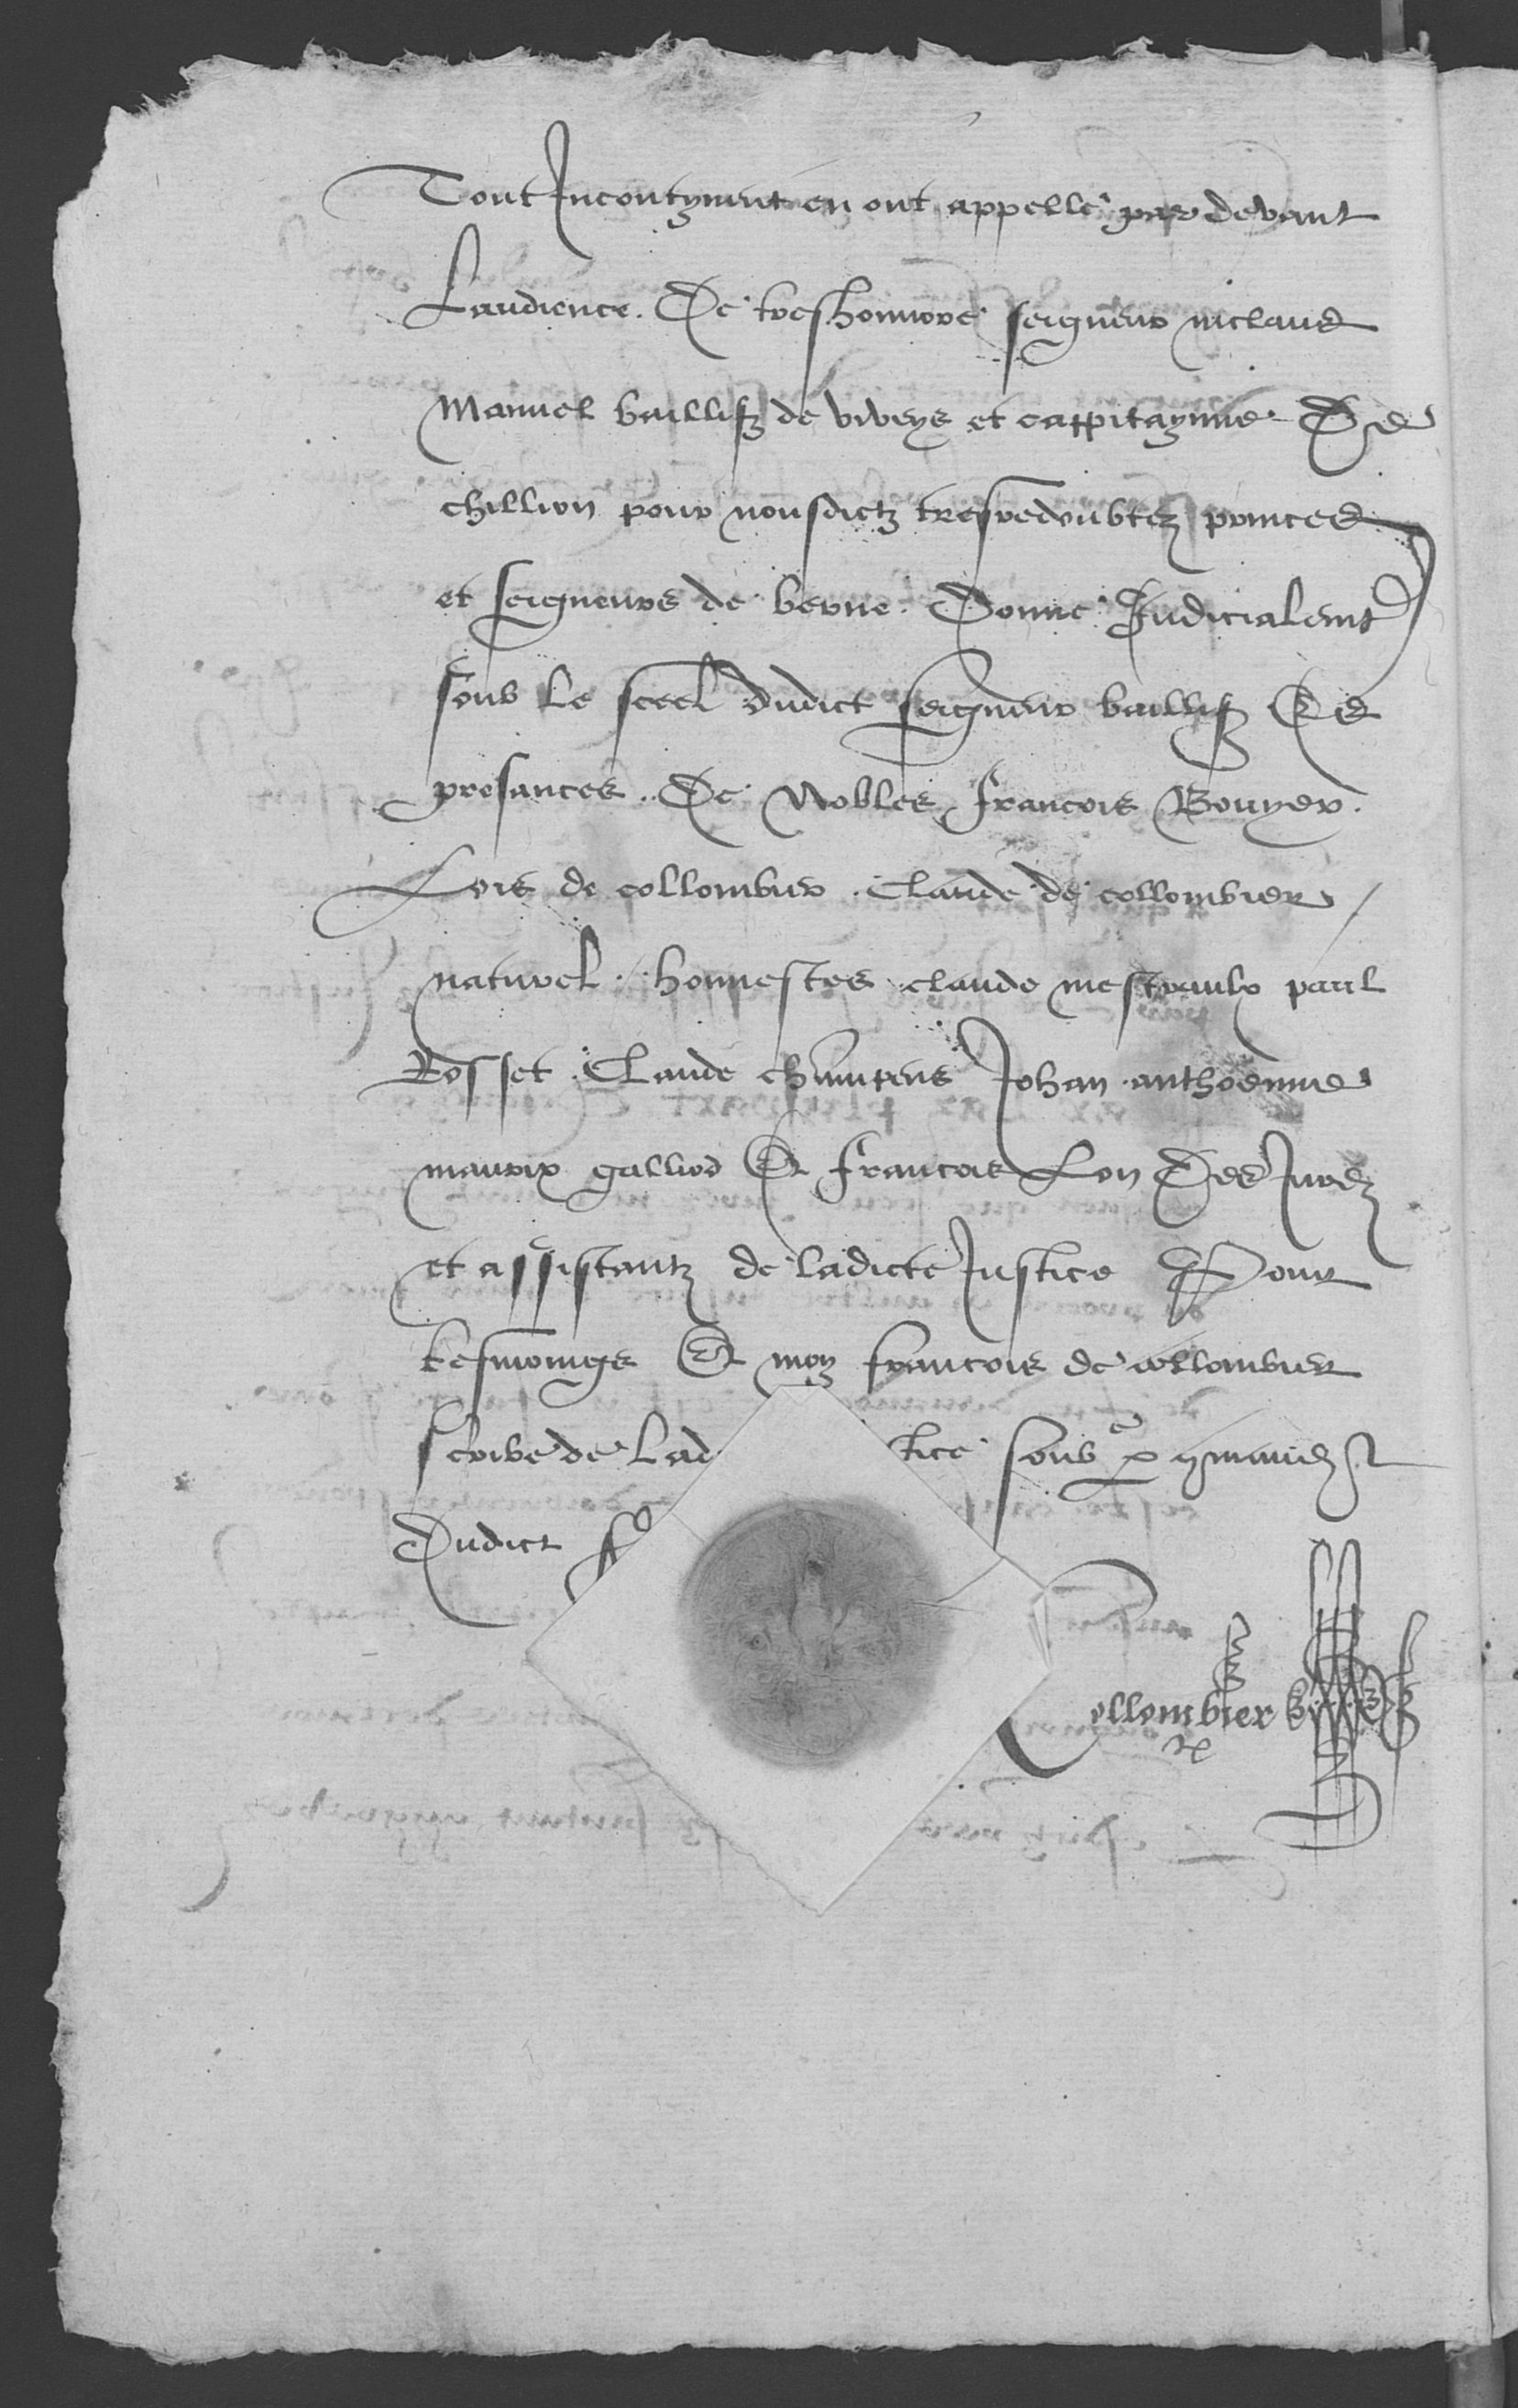 Tout Incontynent en ont appelle par devant
Laudience. De treshonnore seigneur niclaus
Manuel baillifz de viveys et cappitaynne De
chillion pour nousdictz tresredoubtez princes
et seigneurs de berne. Donne Judicialemt
soub le sceel dudict seigneur baillifz Es
presances. De Nobles francois Bouyer.
Lois de collombier. Claude de collombier
naturel. honnestes claude mestraulx paul
Rosset. Claude Johan anthoenne
maurix galliod Et francois Lon Des Jurez
et assistantz de ladicte Justice Pour
tesmoings Et moy francois de collombier
scribe de lad tice soub
Dudict
Collombier